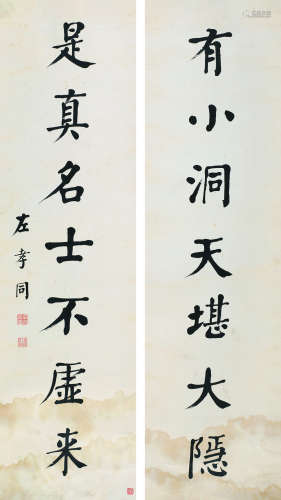 有小洞天堪大隐
是真名士不虚来
左孝同